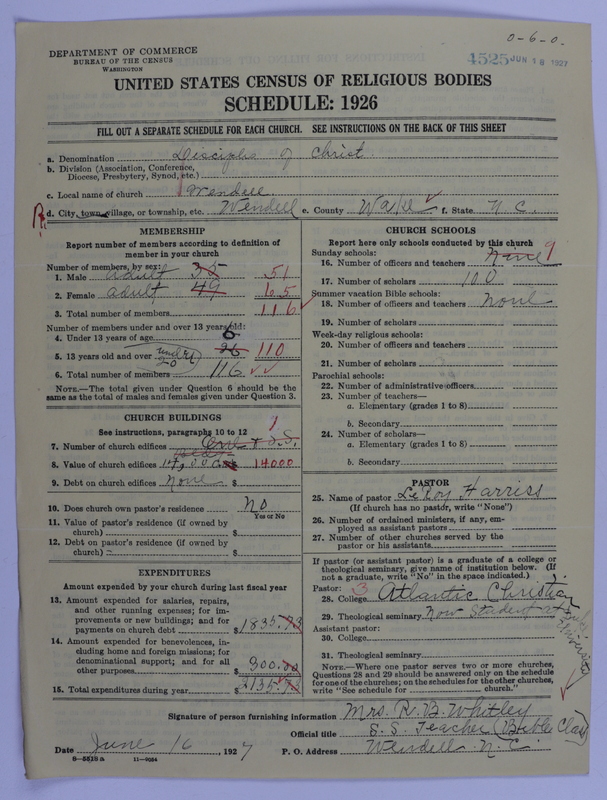 0-6-0.
DEPARTMENT OF COMMERCE
BUREAU OF THE CENSUS
WASHINGTON
4525 JUN 18 1927
UNITED STATES CENSUS OF RELIGIOUS BODIES
SCHEDULE: 1926
FILL OUT A SEPARATE SCHEDULE FOR EACH CHURCH. SEE INSTRUCTIONS ON THE BACK OF THIS SHEET
a. Denomination Disciples of Christ
b. Division (Association, Conference, Diocese, Presbytery, Synod, etc.)
c. Local name of church Wendell
d. City, town, village, or township, etc. Wendell e. County Wake f. State N.C.
MEMBERSHIP
Report number of members according to definition of member in your church
Number of members, by sex:
1. Male adult 35 51
2. Female adult 49 65
3. Total number of members 116
Number of members under and over 13 years old:
4. Under 13 years of age 6
5. 13 years old and over under 21 26 110
6. Total number of members 116
NOTE.—The total given under Question 6 should be the same as the total of males and females given under Question 3.
CHURCH BUILDINGS
See instructions, paragraphs 10 to 12
7. Number of church edifices One & S.S. 1
8. Value of church edifices 14,000 $ 14000
9. Debt on church edifices None $
10. Does church own pastor's residence No
Yes or No
11. Value of pastor's residence (if owned by church) $
12. Debt on pastor's residence (if owned by church) $
EXPENDITURES
Amount expended by church during last fiscal year
13. Amount expended for salaries, repairs, and other running expenses; for improvements or new buildings; and for payments on church debt $1835.73
14. Amount expended for benevolences, including home and foreign missions; for denominational support; and for all other purposes 300.00
15. Total expenditures during year $2135.73
CHURCH SCHOOLS
Report here only schools conducted by this church
Sunday schools:
16. Number of officers and teachers Nine 9
17. Number of scholars 100
Summer vacation Bible schools:
18. Number of officers and teachers None
19. Number of scholars
Week-day religious schools:
20. Number of officers and teachers
21. Number of scholars
Parochial schools:
22. Number of administrative officers
23. Number of teachers—
a. Elementary (grades 1 to 8)
b. Secondary
24. Number of scholars—
a. Elementary (grades 1 to 8)
b. Secondary
PASTOR
25. Name of pastor LeRoy Harriss
(If church has no pastor, write "None")
26. Number of ordained ministers, if any, employed as assistant pastors
27. Number of other churches served by the pastor or his assistants
If pastor (or assistant pastor) is a graduate of a college or theological seminary, give name of institution below. (If not a graduate, write "No" in the space indicated.)
Pastor: 3
28. College Atlantic Christian
29. Theological seminary Now Student at Duke University
Assistant pastor:
30. College
31. Theological seminary
NOTE.—Where one pastor serves two or more churches, Questions 28 and 29 should be answered only on the schedule for one of the churches; on the schedules for the other churches, write "See schedule for church."
Signature of person furnishing information Mrs. R. B. Whitley
Official title S. S. Teacher (Bible Class)
Date June 16, 1927 P. O. Address Wendell N.C.
8—5518 a 11—9054